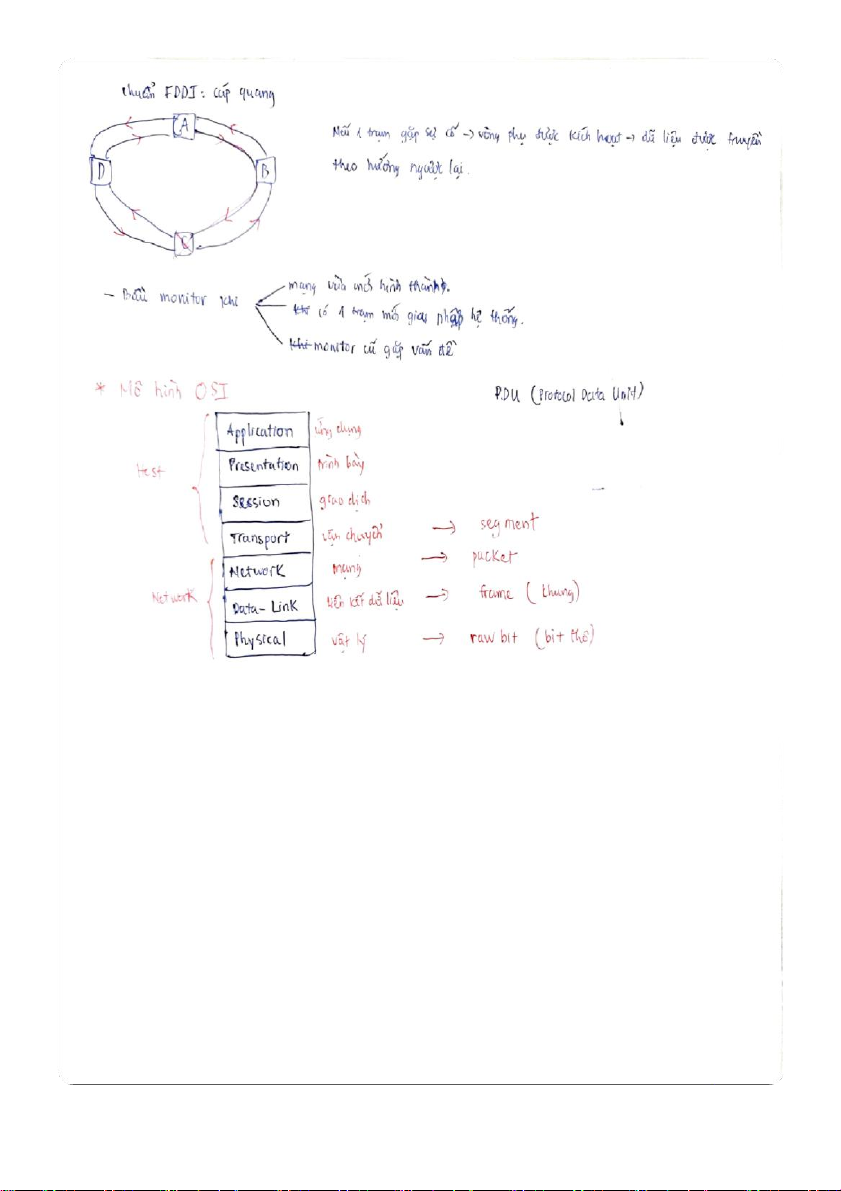 chuẩn FDDI: cáp quang
A
D
B
C
Nếu 1 trạm gặp sự cố → vòng phụ được kích hoạt → dữ liệu được truyền
theo hướng ngược lại.
- Bầu monitor khi
mạng vừa mới hình thành.
Khi có 1 trạm mới gia nhập hệ thống.
Khi monitor cũ gặp vấn đề
* Mô hình OSI
PDU (Protocol Data Unit)
Application ứng dụng
Host
Presentation trình bày
Session giao dịch
Transport vận chuyển → segment
Network mạng → packet
Network
Data-Link liên kết dữ liệu → frame (thung)
Physical vật lý → raw bit (bit thô)